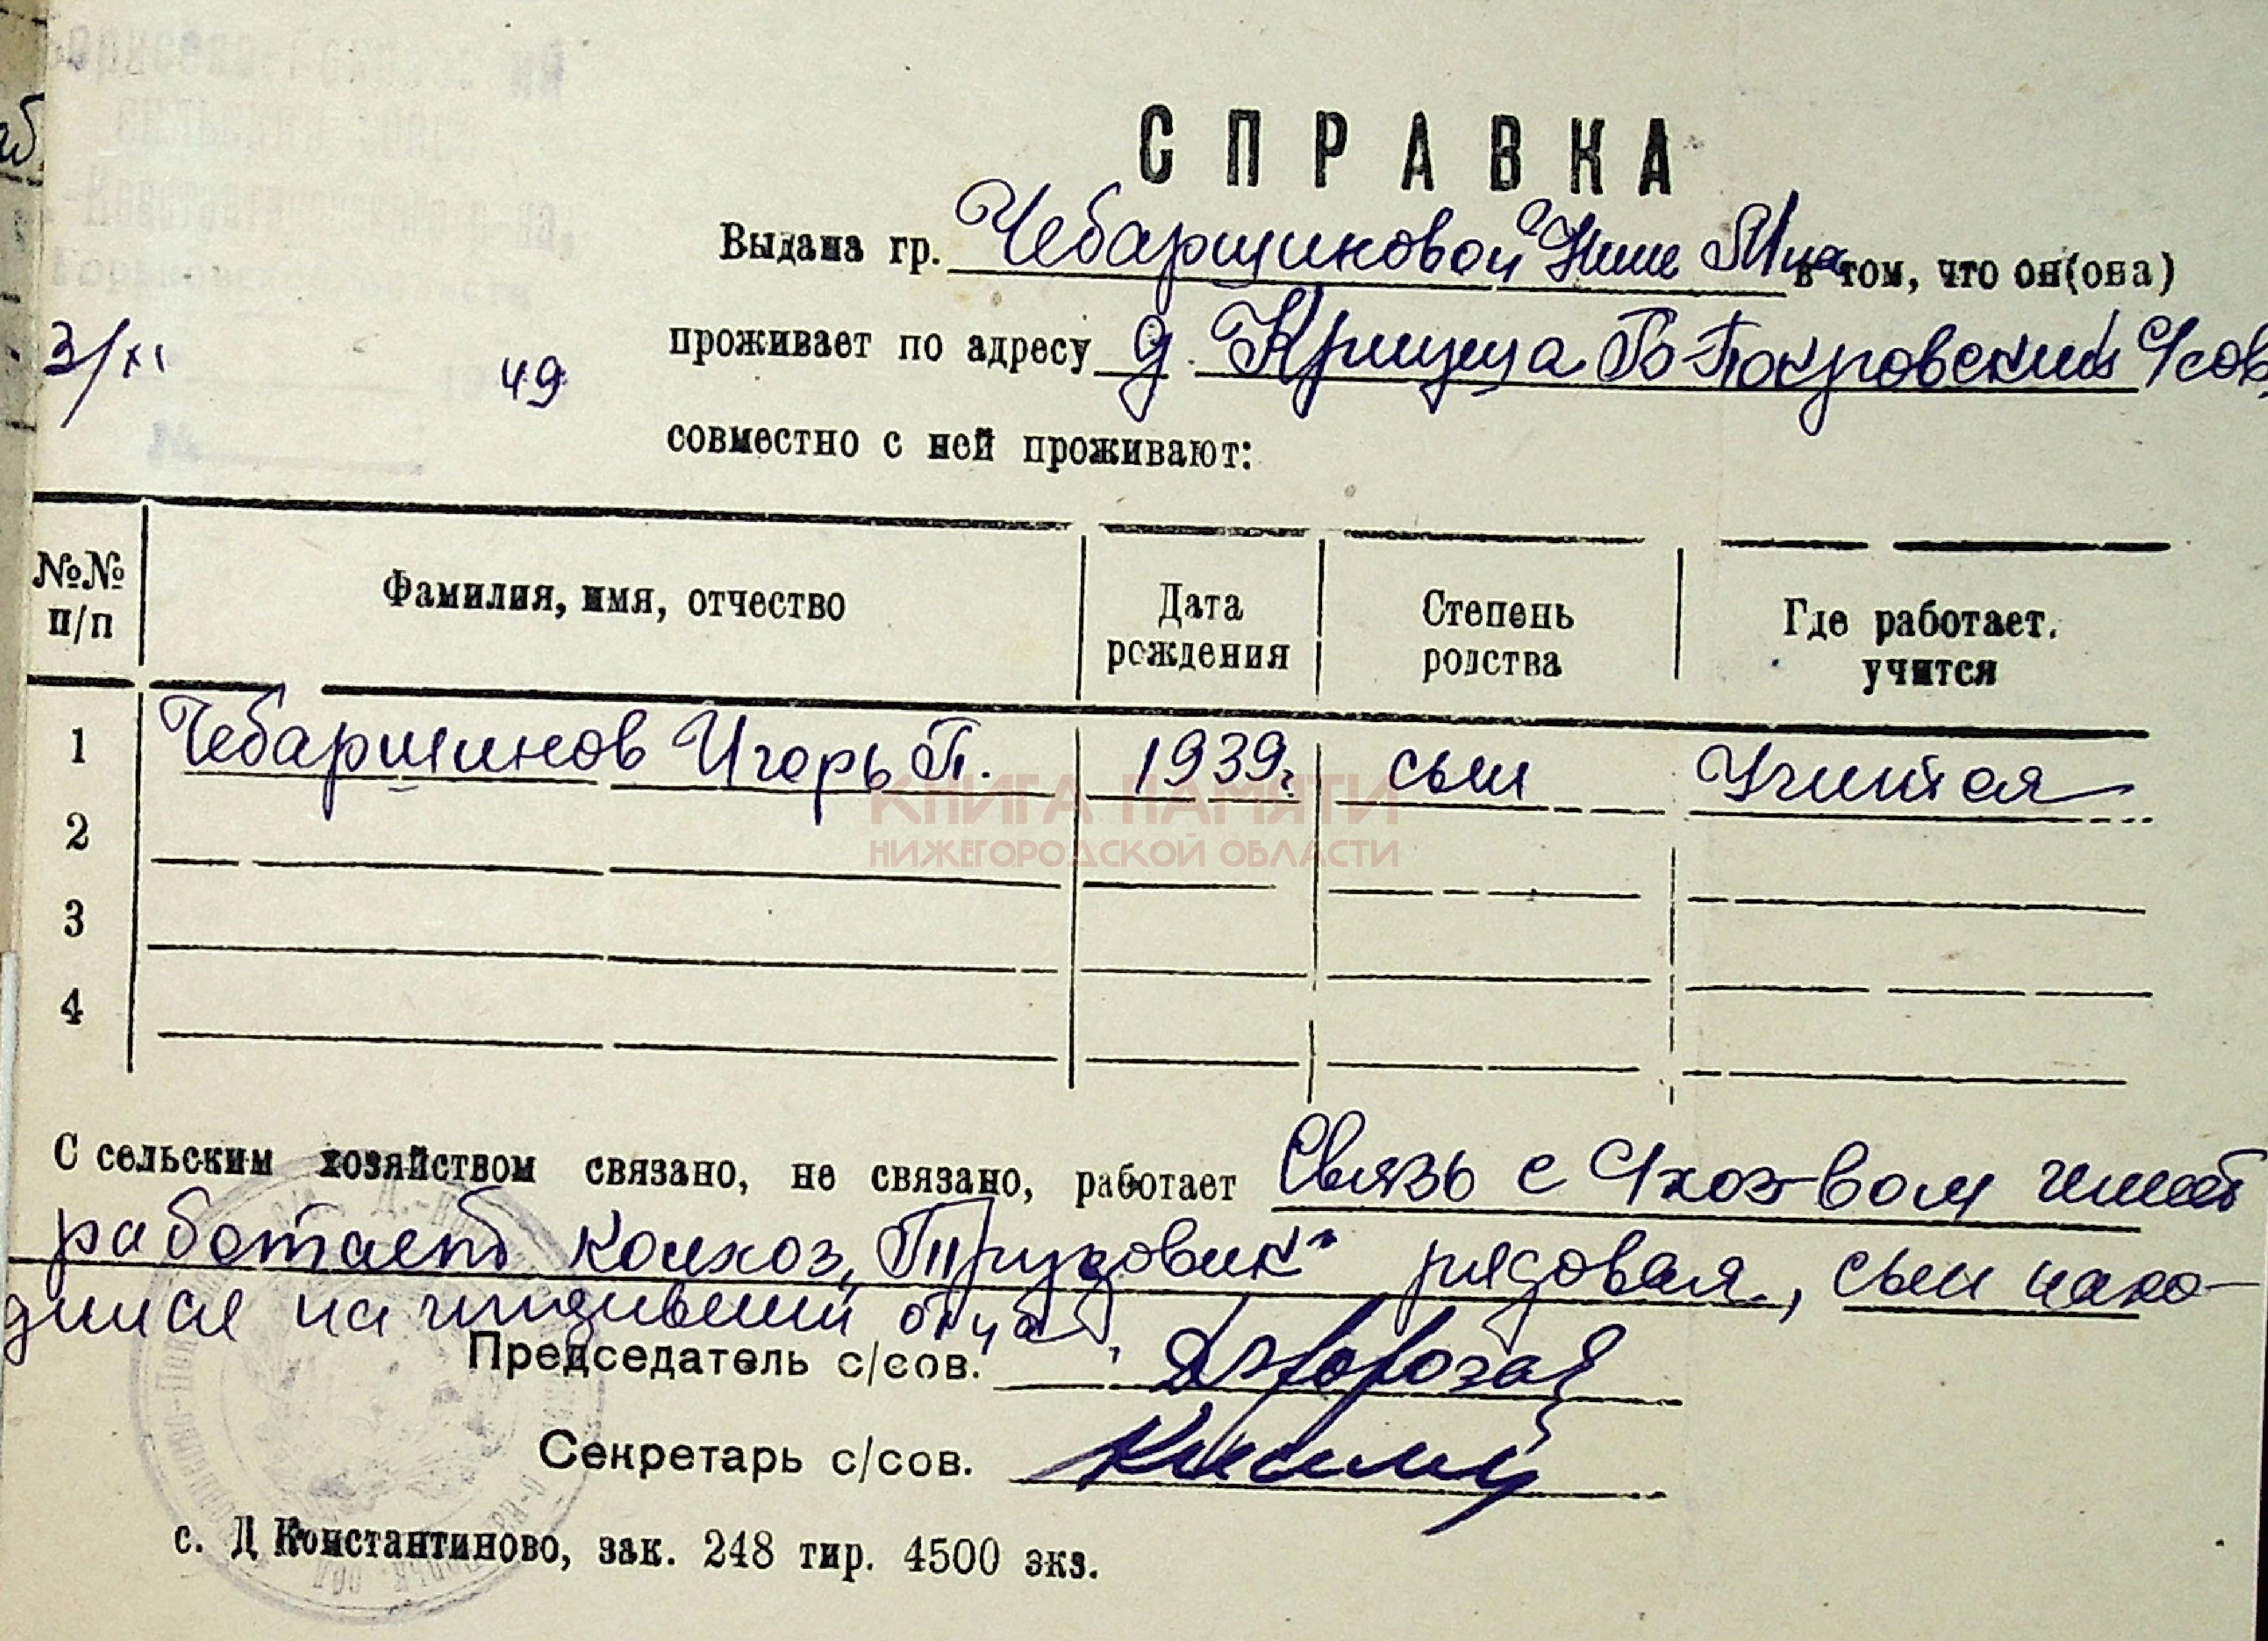 СПРАВКА
Выдана гр. Чебарщиковой Нине в том, что он(она)
3/XI 49
проживает по адресу д. Крицца Б-Покровский с/сов
совместно с ней проживают:
№№ п/п
Фамилия, имя, отчество
Дата рождения
Степень родства
Где работает. учится
1 Чебарщиков Игорь П. 1939г. сын Учится
КНИГА ПАМЯТИ
НИЖЕГОРОДСКОЙ ОБЛАСТИ
2
3
4
С сельским хозяйством связано, не связано, работает Связь с с/хоз-вом имеет
работает колхоз „Трудовик“ рядовая, сын нахо-
дился на иждивении отца
Председатель с/сов.
Секретарь с/сов.
с. Д Константиново, зак. 248 тир. 4500 экз.